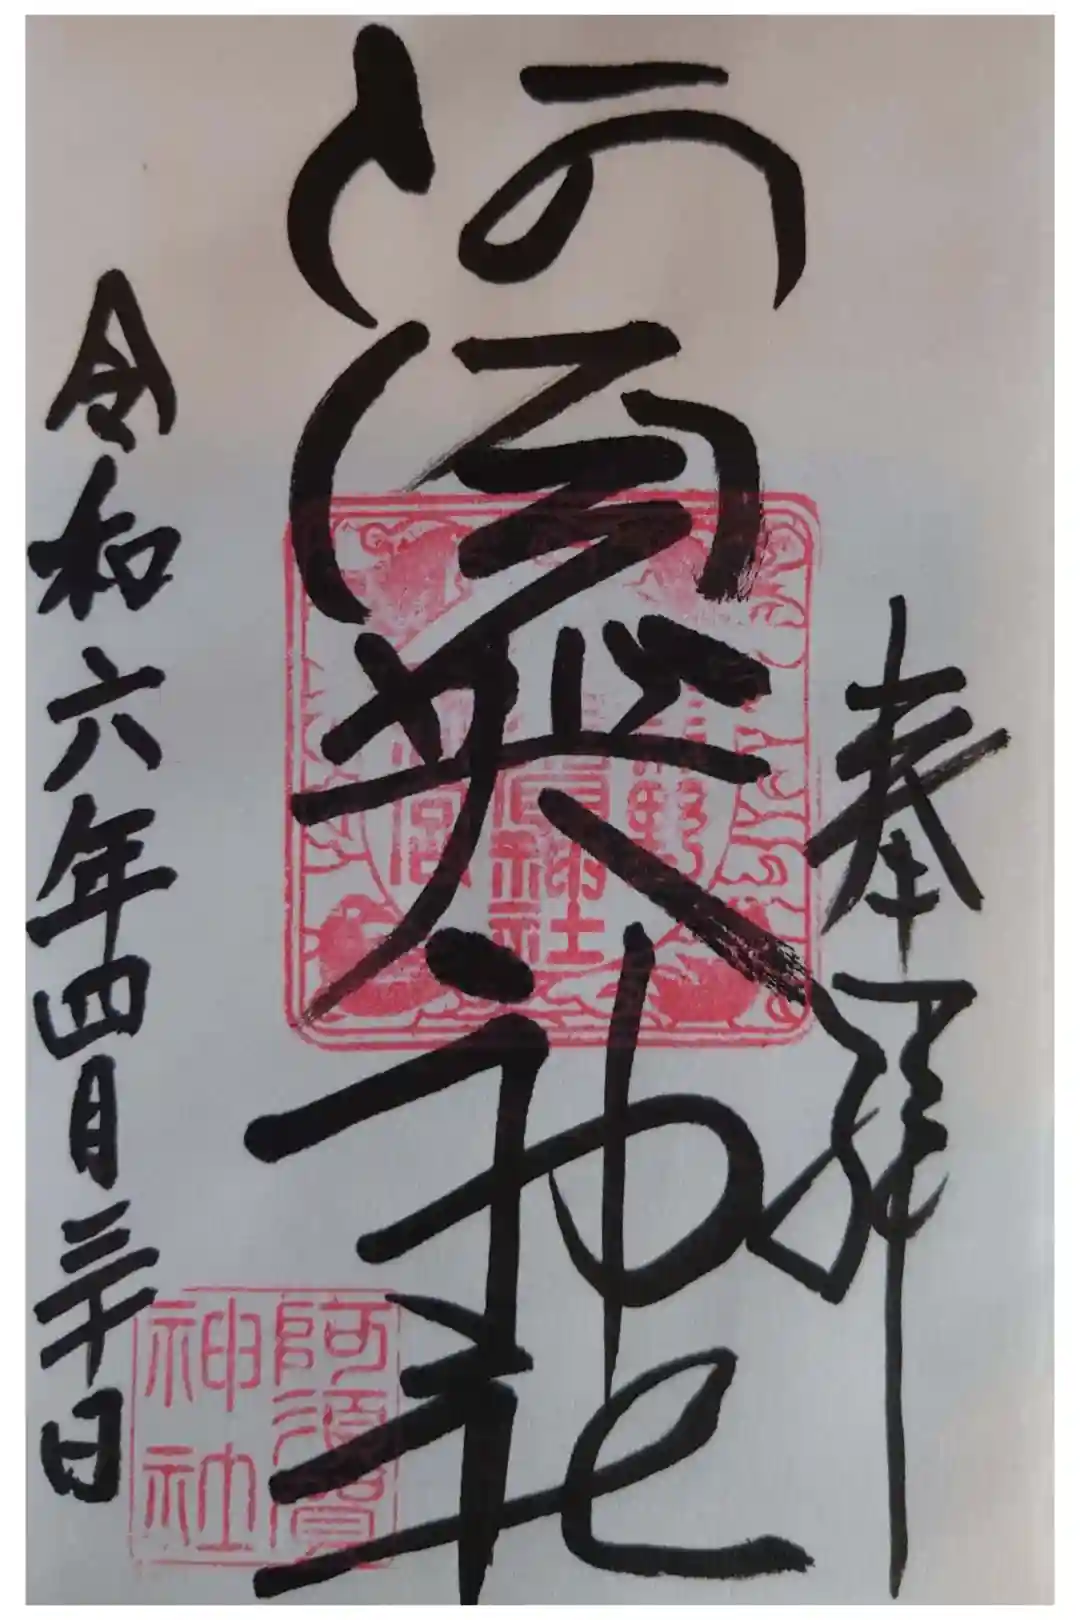 奉拝
阿須賀神社
令和六年四月三十日
阿須賀
神社